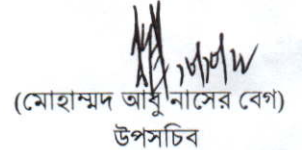 (মোহাম্মদ আবু নাসের বেগ)
উপসচিব